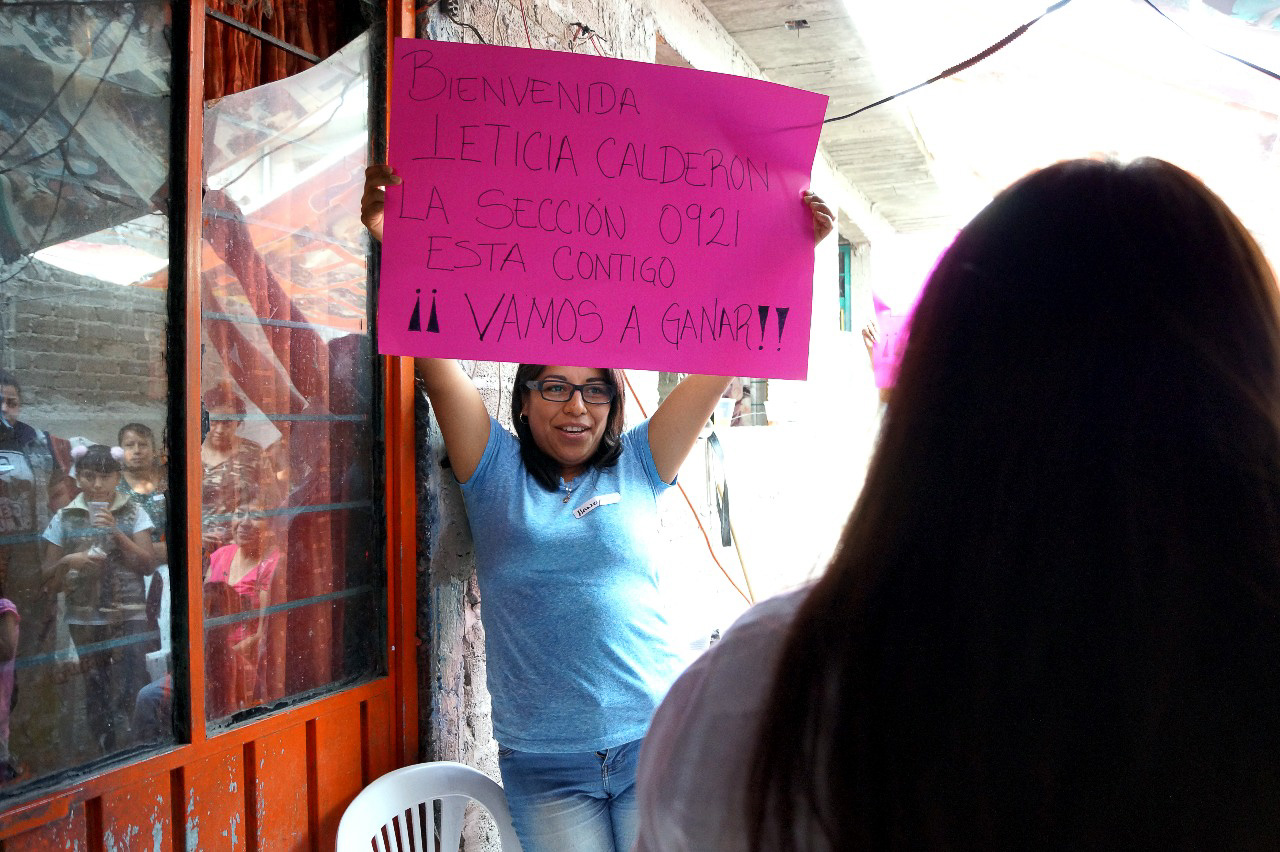 BIENVENIDA
LETICIA CALDERON
LA SECCIÓN 0921
ESTA CONTIGO
¡¡ VAMOS A GANAR!!